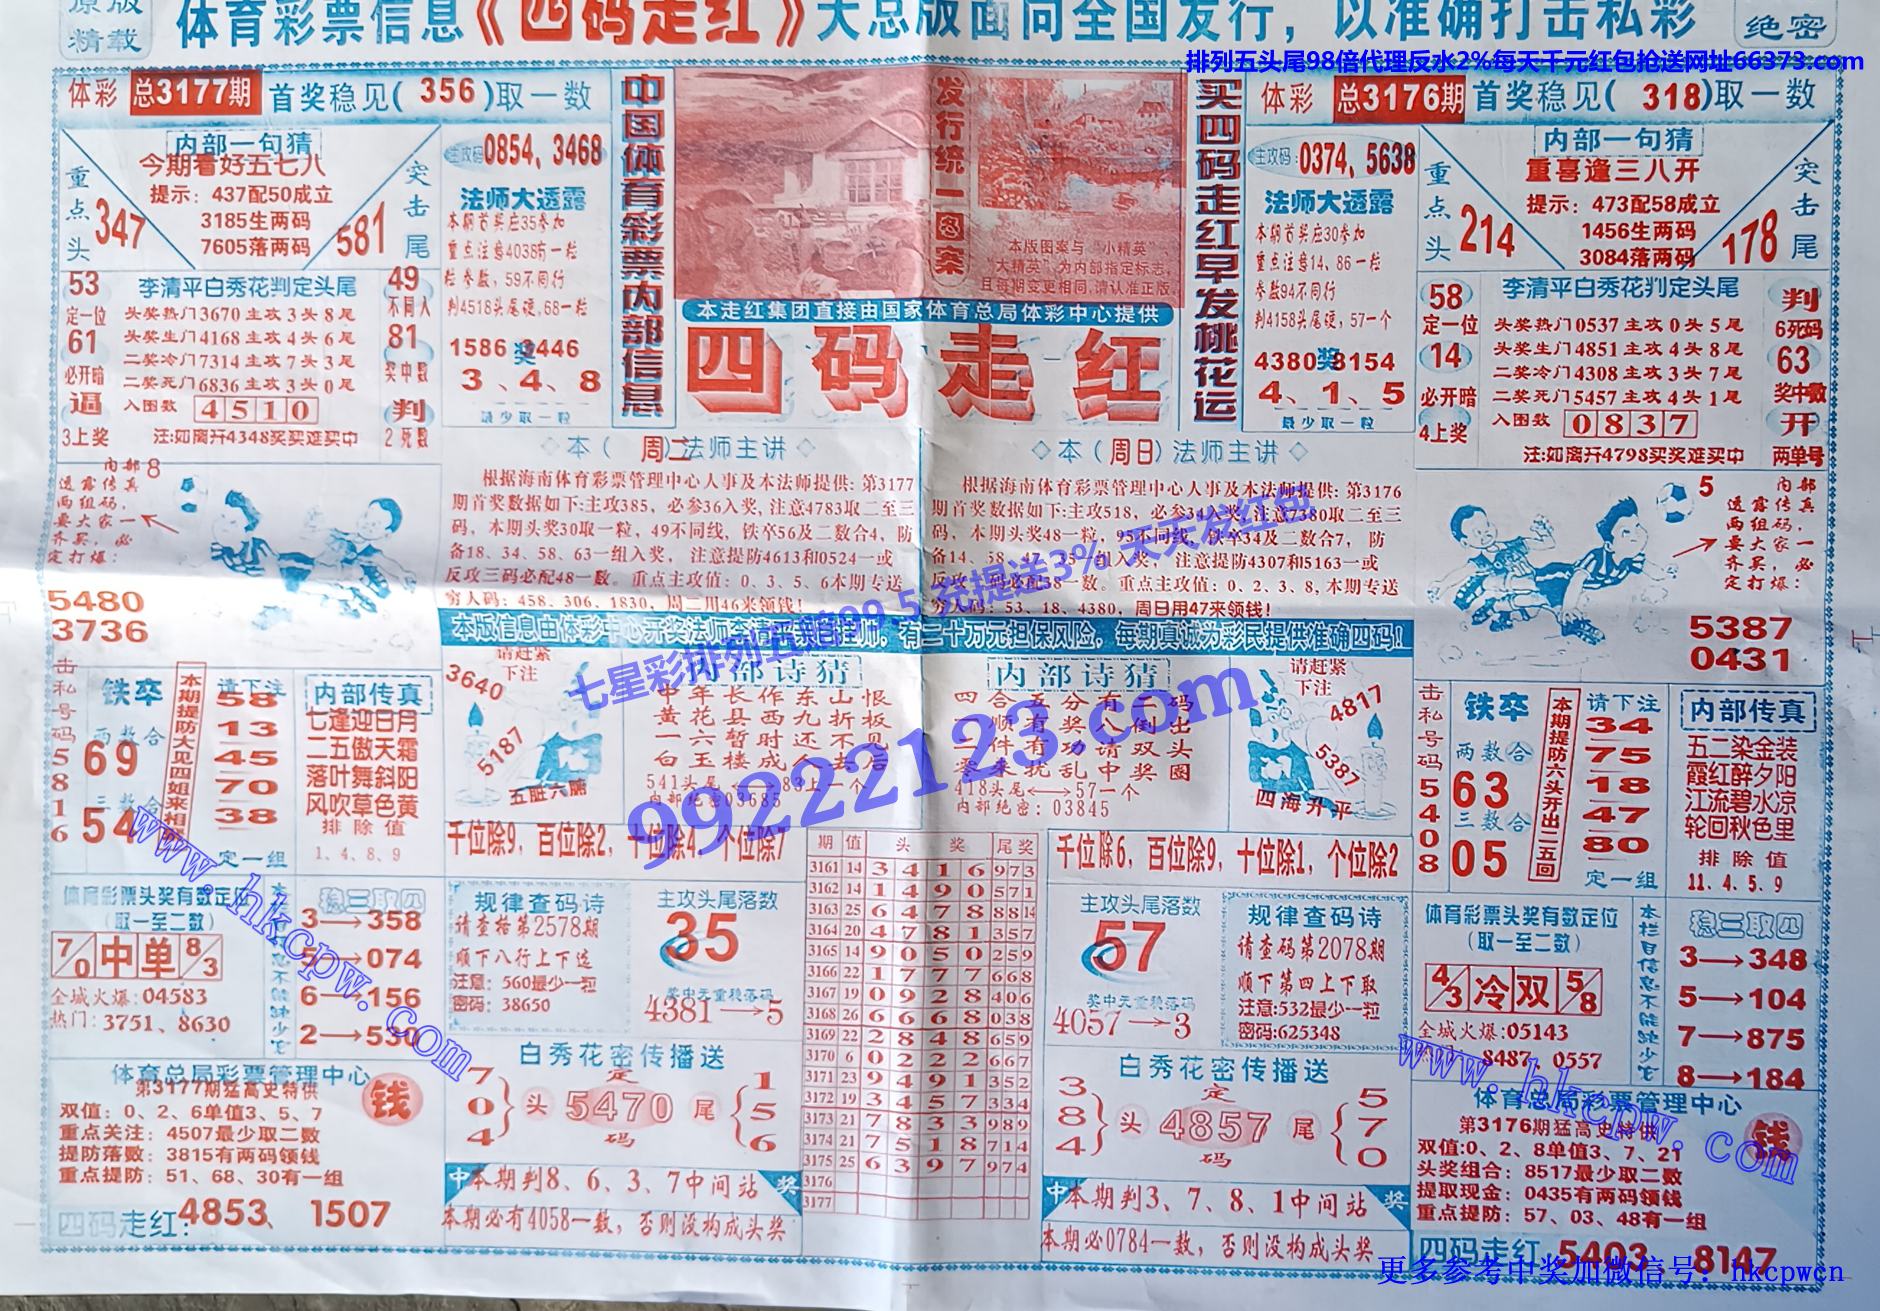 原版
精载
体育彩票信息《四码走红》大总版面向全国发行，以准确打击私彩
绝密
排列五头尾98倍代理反水2%每天千元红包抢送网址66373.com
体彩 总3177期 首奖稳见(356)取一数
内部一句猜
今期看好五七八
提示：437配50成立
3185生两码
7605落两码
重点头 347
突击尾 581
主攻码 0854、3468
法师大透露
本期首奖应35参加
重点注意4038防一粒
粒参数，59不同行
判4518头尾硬，68一粒
1586奖2446
3、4、8
最少取一粒
53
定一位
61
必开暗
逼
3上奖
李清平白秀花判定头尾
头奖热门3670主攻3头8尾
头奖生门4168主攻4头6尾
二奖冷门7314主攻7头3尾
二奖死门6836主攻3头0尾
入图数 4510
注:如离开4348奖买难买中
49
不同人
81
奖中数
判
2死数
中国体育彩票内部信息
发行统一图案
本版图案与“小精英”
“大精英”为内部指定标志，
且每期变更相同，请认准正版
本走红集团直接由国家体育总局体彩中心提供
四码走红
买四码走红早发桃花运
体彩 总3176期 首奖稳见(318)取一数
主攻码：0374、5638
法师大透露
本期首奖应30参加
重点注意14、86一粒
参数94不同行
判4158头尾硬，57一个
4380奖8154
4、1、5
最少取一粒
内部一句猜
重喜逢三八开
提示：473配58成立
1456生两码
3084落两码
重点头 214
突击尾 178
58
定一位
14
必开暗
4上奖
李清平白秀花判定头尾
头奖热门0537主攻0头5尾
头奖生门4851主攻4头8尾
二奖冷门4308主攻3头7尾
二奖死门5457主攻4头1尾
入图数 0837
注:如离开4798买奖难买中
判
6死码
63
奖中数
开
两单号
内部8
透露传真
两组码，
要大家一
齐买，必
定打爆：
5480
3736
◇本（周二）法师主讲◇
根据海南体育彩票管理中心人事及本法师提供：第3177
期首奖数据如下:主攻385，必参36入奖，注意4783取二至三
码，本期头奖30取一粒，49不同线，铁卒56及二数合4，防
备18、34、58、63一组入奖， 注意提防4613和0524一或
反攻三码必配48一数。重点主攻值：0、3、5、6本期专送
穷人码：458、306、1830，周二用46来领钱！
◇本（周日）法师主讲◇
根据海南体育彩票管理中心人事及本法师提供：第3176
期首奖数据如下:主攻518，必参34入奖，注意7380取二至三
码，本期头奖48一粒，95不同线，铁卒34及二数合7， 防
一组入奖， 注意提防4307和5163一或
数。重点主攻值：0、2、3、8，本期专送
穷人码：53、18、4380，周日用47来领钱！
5 内部
透露传真
两组码，
要大家一
齐买，必
定打爆：
5387
0431
七星彩排列五赔99.5 充提送3% 天天发红包
99222123.com
击私号码5816
铁卒
两数合
69
三数合
54
本期提防大见四姐来相
请下注
58
13
45
70
38
定一组
内部传真
七逢迎日月
二五傲天霜
落叶舞斜阳
风吹草色黄
排除值
1、4、8、9
请赶紧
下注
3640
5187
五脏六腑
内部诗猜
中年长作东山恨
黄花县西九折板
一六暂时还不见
白玉楼成
541头尾
内部绝密03685
内部诗猜
零来扰乱中奖圈
418头尾⟷57一个
内部绝密：03845
请赶紧
下注
4817
5387
四海升平
击私号码5408
铁卒
两数合
63
三数合
05
本期提防六头开出二五回
请下注
34
75
18
47
80
定一组
内部传真
五二染金装
霞红醉夕阳
江流碧水凉
轮回秋色里
排除值
11、4、5、9
千位除9，百位除2，十位除4，个位除7
千位除6，百位除9，十位除1，个位除2
期 值 头 奖 尾奖
3161 14 3 4 1 6 973
3162 14 1 4 9 0 571
3163 25 6 4 7 8 8814
3164 20 4 7 8 1 357
3165 14 9 0 5 0 259
3166 22 1 7 7 7 668
3167 19 0 9 2 8 406
3168 26 6 6 6 8 038
3169 22 2 8 4 8 659
3170 6 0 2 2 2 667
3171 23 9 4 9 1 352
3172 19 3 4 5 7 334
3173 21 7 8 3 3 989
3174 21 7 5 1 8 714
3175 25 6 3 9 7 974
3176
3177
体育彩票头奖有数定位
（取一至二数）
7/0 中单 8/3
全城火爆：04583
热门：3751、8630
稳三取四
3→358
5→074
6→156
2→530
规律查码诗
请查格第2578期
顺下八行上下选
注意：560最少一粒
密码：38650
主攻头尾落数
35
奖中无重稳落码
4381→5
主攻头尾落数
57
奖中无重稳落码
4057→3
规律查码诗
请查码第2078期
顺下第四上下取
注意:532最少一粒
密码:625348
体育彩票头奖有数定位
（取一至二数）
4/3 冷双 5/8
全城火爆:05143
8487、0557
本栏目信息不能缺少它
稳三取四
3→348
5→104
7→875
8→184
体育总局彩票管理中心
第3177期猛高史特供
双值：0、2、6单值3、5、7
重点关注：4507最少取二数
提防落数：3815有两码领钱
重点提防：51、68、30有一组
钱
四码走红：4853、1507
白秀花密传播送
7 0 4 头 定 5470 码 尾 1 5 6
中 本期判8、6、3、7中间站 奖
本期必有4058一数，否则没构成头奖
白秀花密传播送
3 8 4 头 定 4857 码 尾 5 7 0
中 本期判3、7、8、1中间站 奖
本期必0784一数，否则没构成头奖
体育总局彩票管理中心
第3176期猛高史特供
双值:0、2、8单值3、7、21
头奖组合：8517最少取二数
提取现金：0435有两码领钱
重点提防：57、03、48有一组
钱
四码走红 5403、8147
www.hkcpw.com
www.hkcpw.com
更多参考中奖加微信号：hkcpwcn